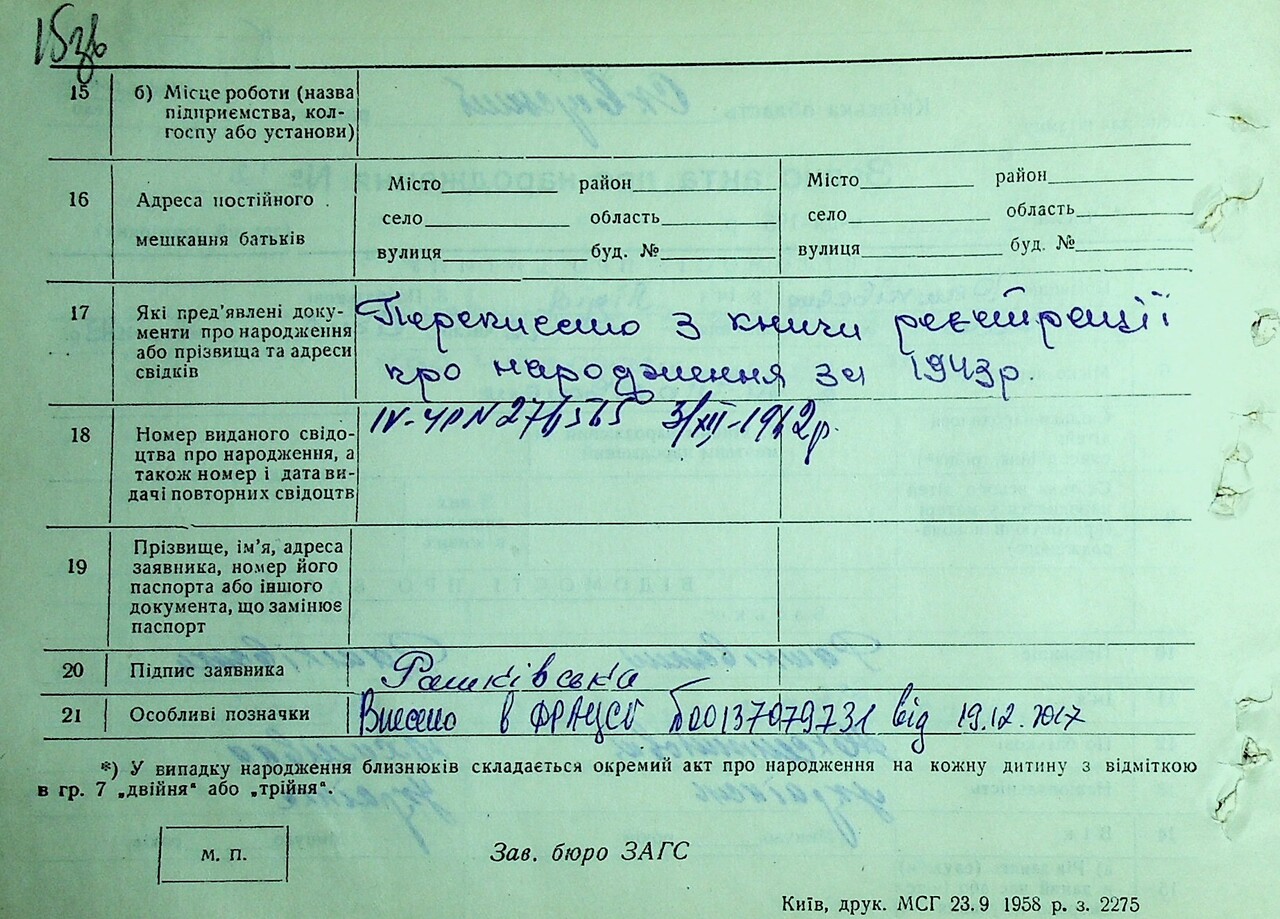 15зв
15 б) Місце роботи (назва
підприємства, кол-
госпу або установи)
16 Адреса постійного
мешкання батьків
Місто район
село область
вулиця буд. №
Місто район
село область
вулиця буд. №
17 Які пред’явлені доку-
менти про народження
або прізвища та адреси
свідків
Переписано з книги реєстрації
про народження за 1943р.
18 Номер виданого свідо-
цтва про народження, а
також номер і дата ви-
дачі повторних свідоцтв
19 Прізвище, ім’я, адреса
заявника, номер його
паспорта або іншого
документа, що замінює
паспорт
20 Підпис заявника Рашківська
21 Особливі позначки Внесено в ДРАЦСГ 00137079731 від 19.12.2017
*) У випадку народження близнюків складається окремий акт про народження на кожну дитину з відміткою
в гр. 7 „двійня“ або „трійня“.
м. п.
Зав. бюро ЗАГС
Київ, друк. МСГ 23.9 1958 р. з. 2275